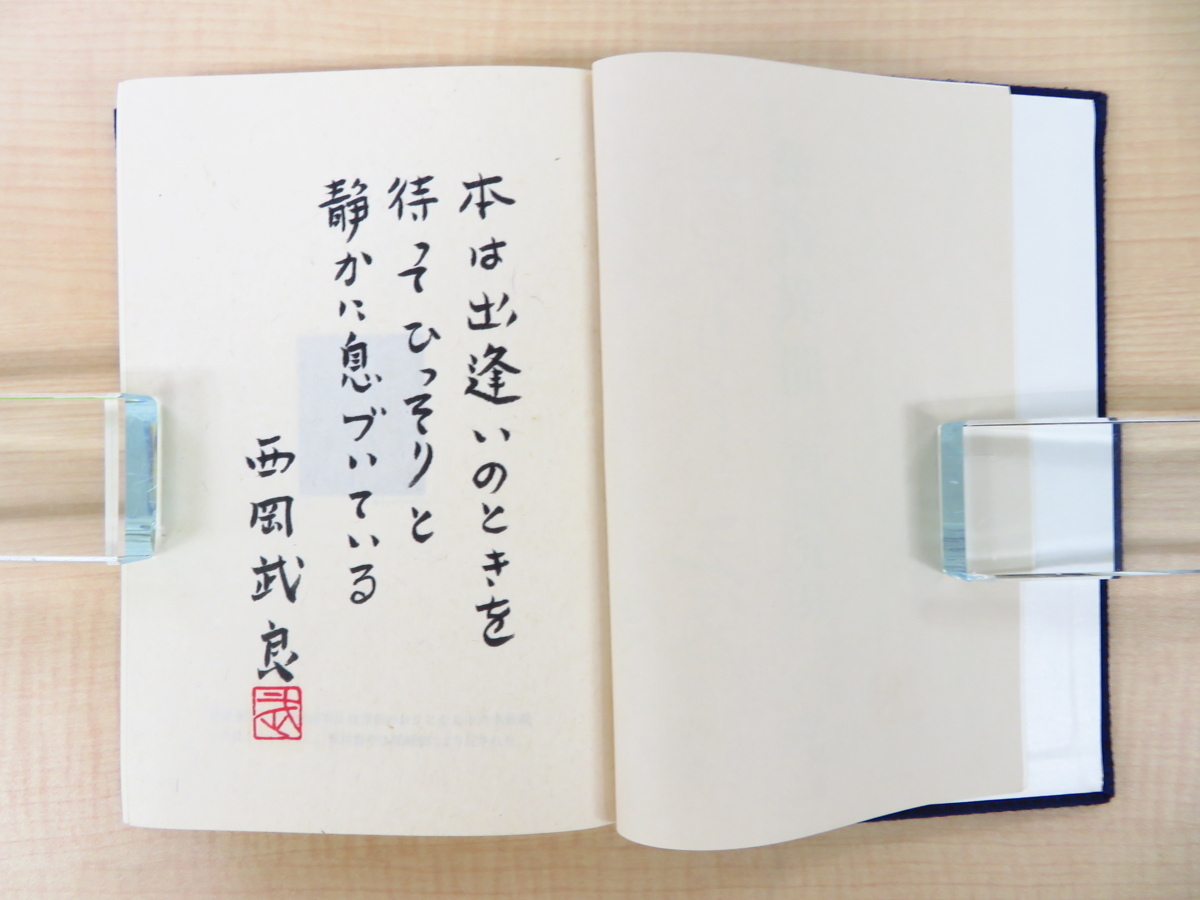 本は出逢いのときを
待ってひっそりと
静かに息づいている
西岡武良
武